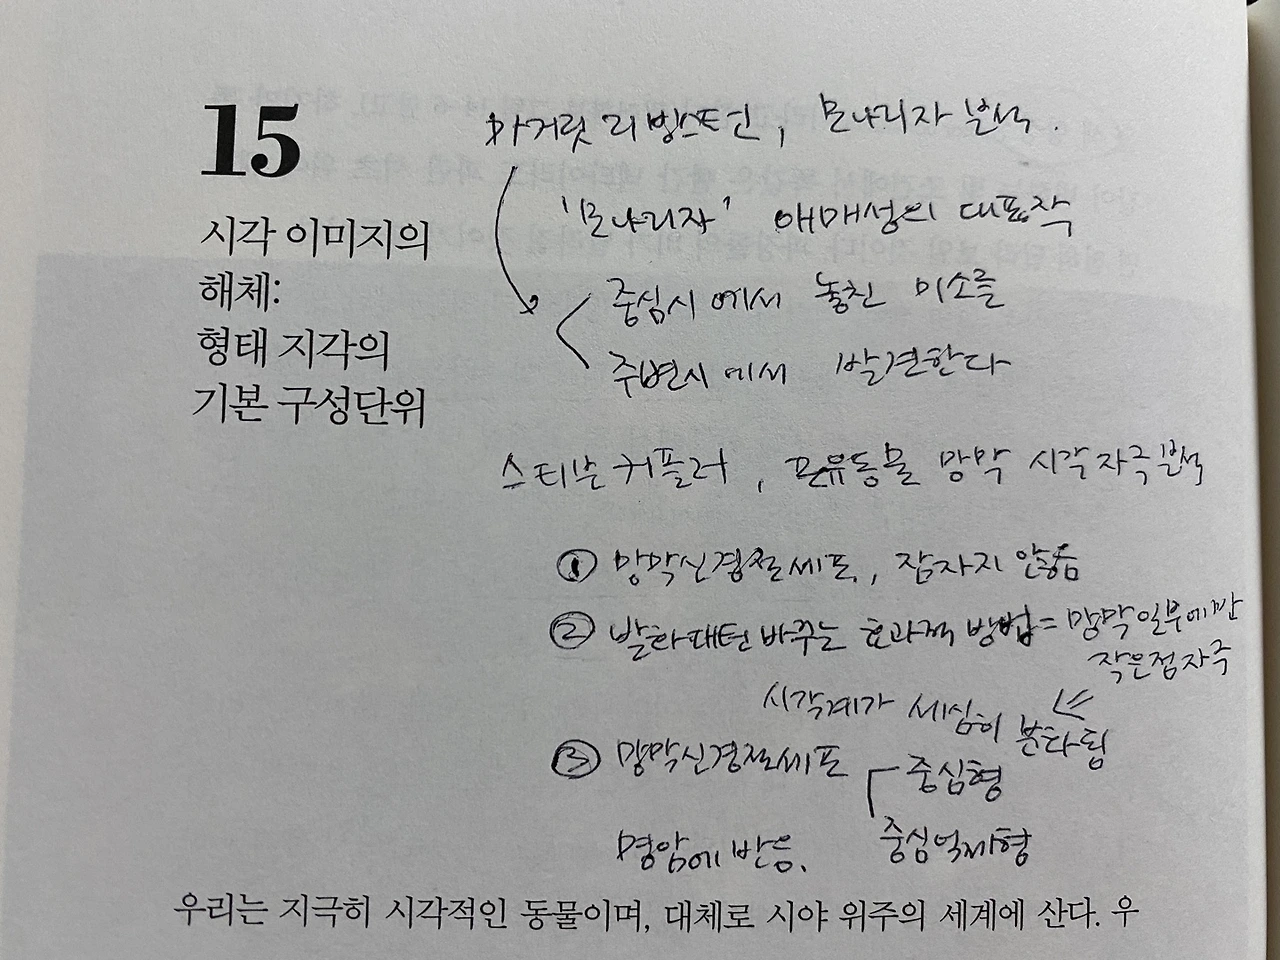 15
시각 이미지의
해체:
형태 지각의
기본 구성단위
마거릿 리빙스턴, 모나리자 분석.
'모나리자' 애매성의 대표작
중심시에서 놓친 미소를
주변시에서 발견한다
스티븐 커플러, 포유동물 망막 시각자극 분석
① 망막신경절세포, 잠자지 않음
② 발화패턴 바꾸는 효과적 방법 = 망막일부에만
작은점자극
시각계가 세심히 분화됨
③ 망막신경절세포 중심형
중심억제형
명암에 반응.
우리는 지극히 시각적인 동물이며, 대체로 시야 위주의 세계에 산다. 우